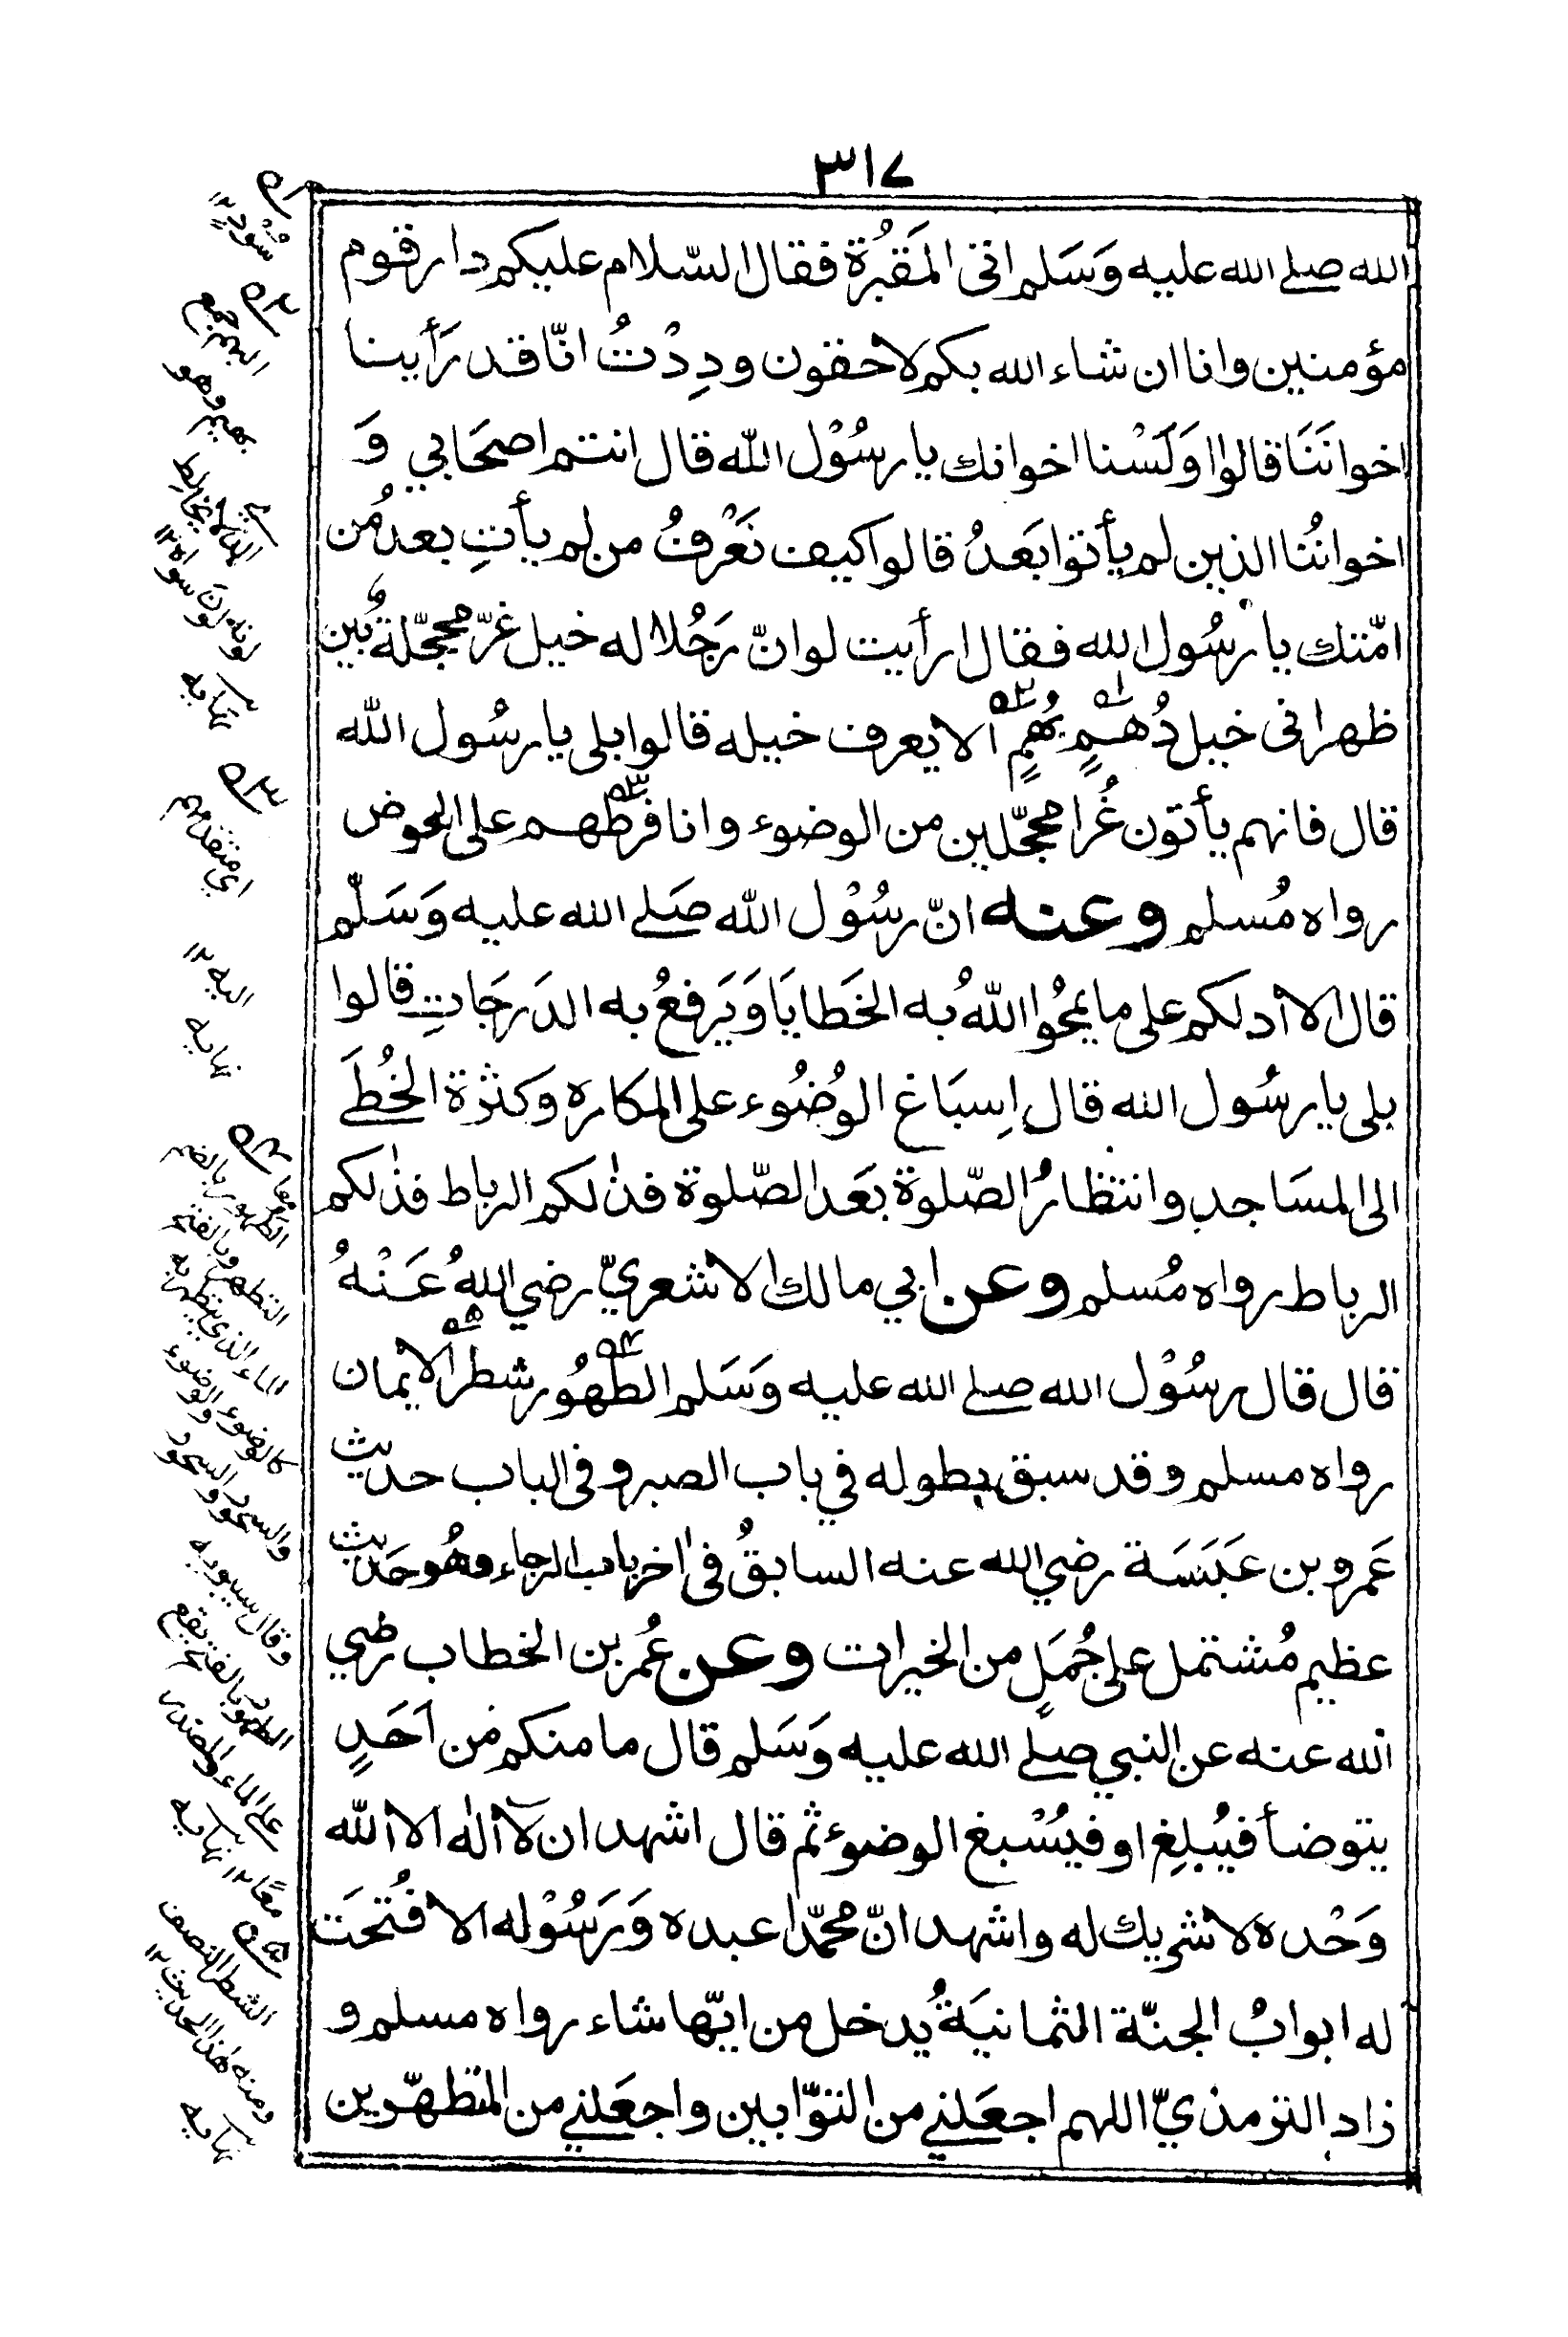 ٣١٧
الله صلى الله عليه وَسَلم اتى المَقبُرة فقال السّلام عليكم دار قوم
مؤمنين وانا ان شاء الله بكم لاحقون ودِدْتُ انّا قد رَأينا
اخواننَا قالوا اَوَلَسْنا اخوانك يا رسُوْل الله قال انتم اصحَابي وَ
اخوانُنا الذين لم يأتوا بَعدُ قالوا كيف نَعْرفُ من لم يأتِ بعدُ مِن
امّتك يا رسُول الله فقال ارأيت لو انّ رَجُلا له خيل غُرّ محجّلة بين
ظهرانى خيل دُهمٍ بُهمٍ الا يعرف خيله قالوا بلى يا رسُول الله
قال فانهم يأتون غُرا محجّلين من الوضوء وانا فرَطهم على الحوض
رواه مُسلم وعنه انّ رسُوْل الله صَلى الله عليه وَسَلّم
قال الا ادلكم على ما يمحُوا اللهُ به الخَطايَا وَيَرفعُ به الدَرجَاتِ قالوا
بلى يا رسُول الله قال اِسبَاغ الوُضُوء على المكاره وكثرة الخُطَى
الى المسَاجد وانتظارُ الصّلوة بَعد الصّلوة فذٰلكم الرباط فذٰلكم
الرباط رواه مُسلم وعن ابي مالك الاشعريّ رضي اللهُ عَنْهُ
قال قال رسُوْل الله صلى الله عليه وَسَلم الطُّهُور شطر الايمان
رواه مسلم وقد سبق بطوله في باب الصبر وفى الباب حديث
عَمرو بن عَبَسَة رضي الله عنه السابقُ فى اٰخر باب الرجاء وهُو حَديث
عظيم مُشتمل على جُمَلٍ من الخيرات وعن عُمر بن الخطاب رضي
الله عنه عن النبي صلى الله عليه وَسَلم قال ما منكم مِن اَحَدٍ
يتوضأ فيُبلِغ او فيُسْبغ الوضوء ثم قال اشهد ان لا اله الا الله
وَحْده لا شريك له واشهد انّ محمّدا عبده وَرَسُوْله الا فُتحَت
له ابوابُ الجنّة الثمانيَةُ يدخل من ايّها شاء رواه مسلم و
زاد الترمذيّ اللهم اجعَلني من التوّابين واجعَلني من المتطهّرين
١ه
سُوْدٍ ١٢
٢ه
البهم جمع
بهيم وهو
الذي لا يخالط
لونه لون سواه ١٢
نهايه
٣ه
اي متقدمهم
اليه ١٢
نهايه
٤ه
الطهور بالضم
التطهر وبالفتح
الماء الذي يتطهر به
كالوضوء والوضوء
والسحور والسحور
وقال سيبويه
الطهور بالفتح يقع
على الماء والمصدر
معًا ١٢ نهايه
٥ه
الشطر النصف
ومنه هذا الحديث ١٢
نهايه